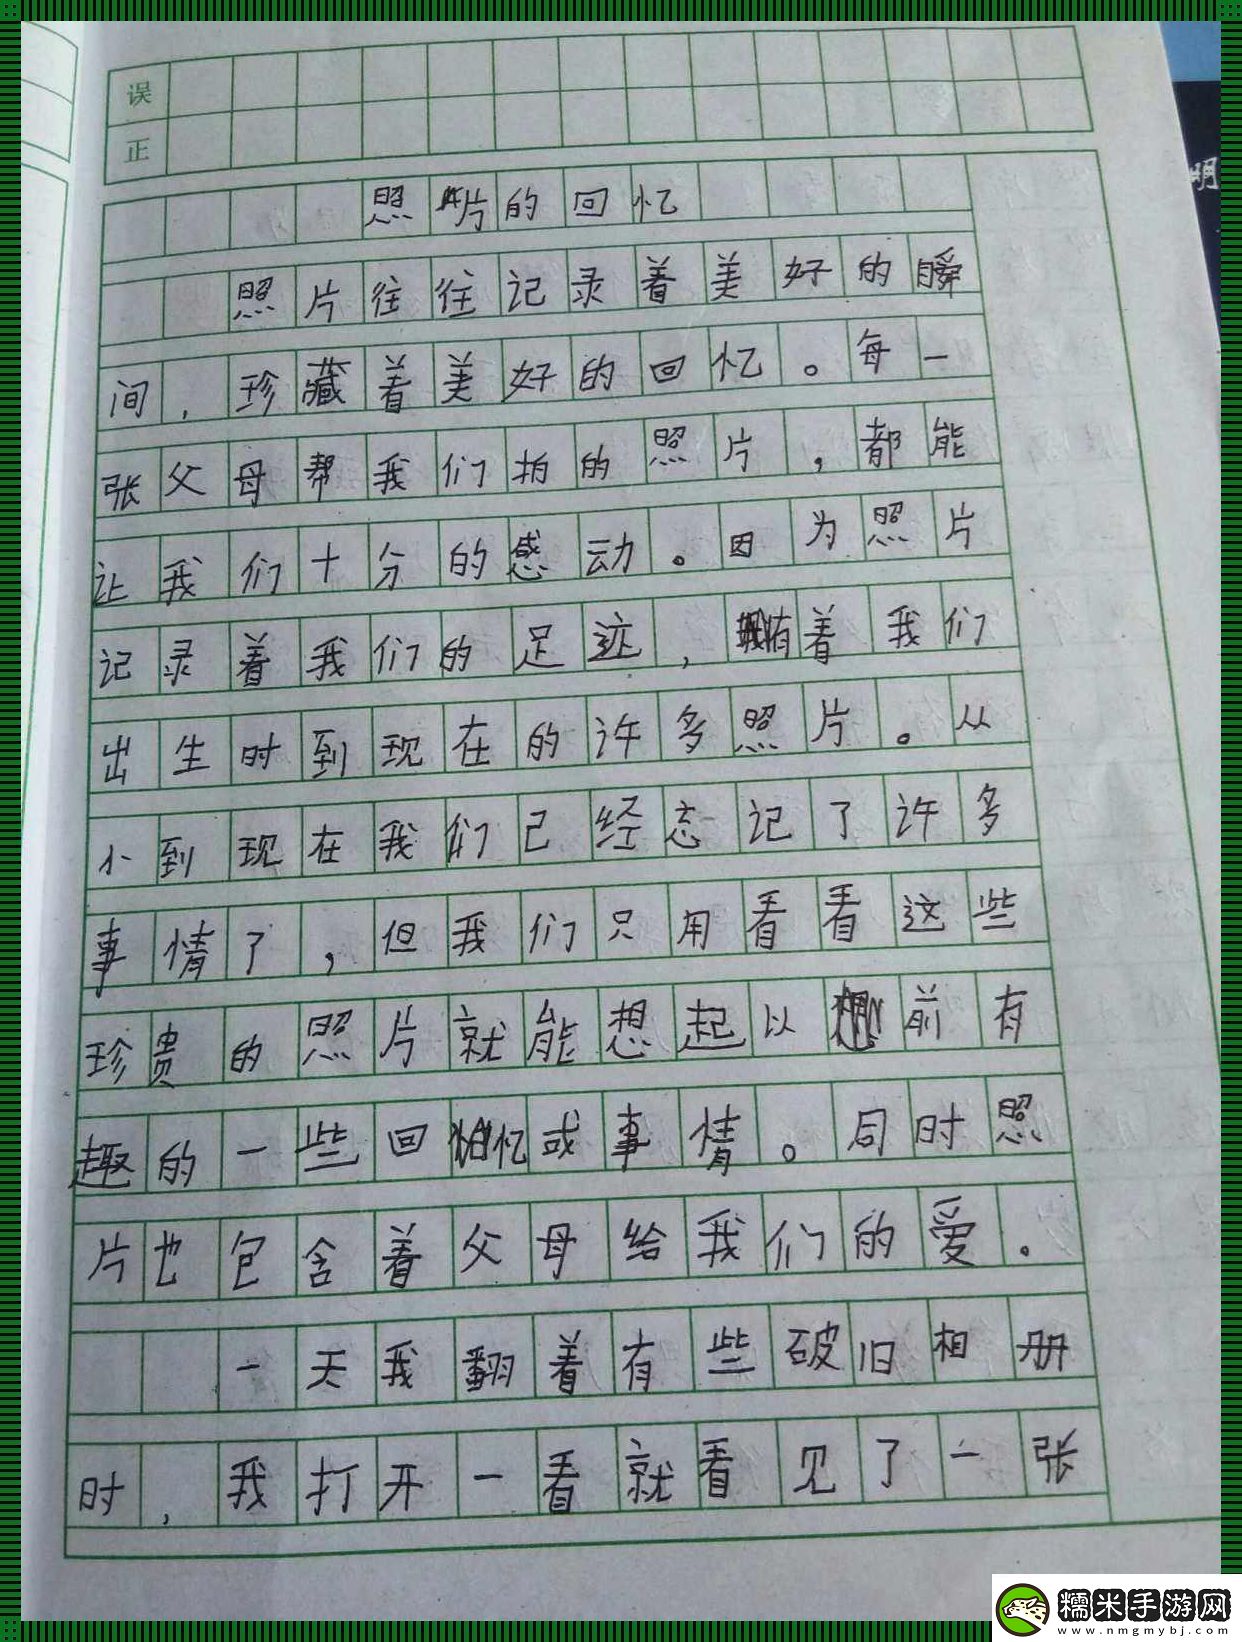 误
正
明
照片的回忆
照片往往记录着美好的瞬
间，珍藏着美好的回忆。每一
张父母帮我们拍的照片，都能
让我们十分的感动。因为照片
记录着我们的足迹，拥有着我们
出生时到现在的许多照片。从
小到现在我们已经忘记了许多
事情了，但我们只用看看这些
珍贵的照片就能想起以前有
趣的一些回忆或事情。同时照
片也包含着父母给我们的爱。
一天我翻着有些破旧相册
时，我打开一看就看见了一张
糯米手游网
www.nmgmybj.com